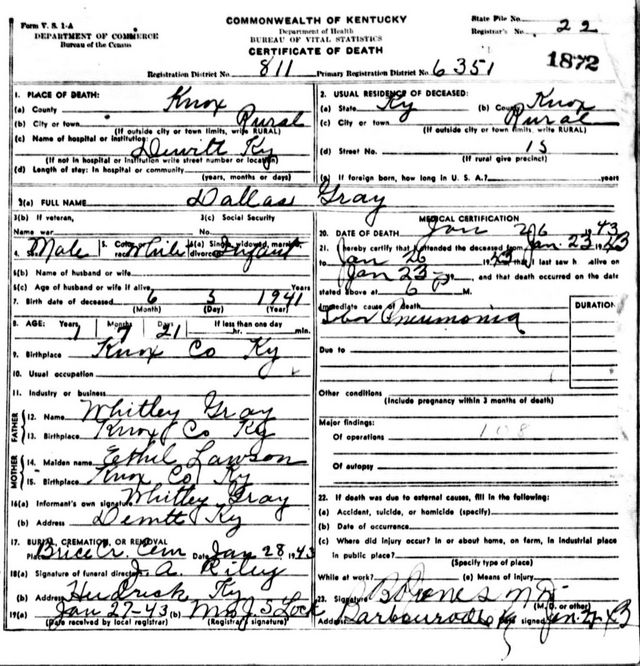 Form V. S. 1-A
DEPARTMENT OF COMMERCE
Bureau of the Census
COMMONWEALTH OF KENTUCKY
Department of Health
BUREAU OF VITAL STATISTICS
CERTIFICATE OF DEATH
State File No.
Registrar's No. 22
1872
Registration District No. 811 Primary Registration District No. 6351
1. PLACE OF DEATH:
(a) County Knox
(b) City or town Rural
(If outside city or town limits, write RURAL)
(c) Name of hospital or institution Dewitt Ky
(If not in hospital or institution write street number or location)
(d) Length of stay: In hospital or community
(years, months or days)
2. USUAL RESIDENCE OF DECEASED:
(a) State Ky (b) County Knox
(c) City or town Rural
(If outside city or town limits, write RURAL)
(d) Street No. 15
(If rural give precinct)
(e) If foreign born, how long in U. S. A.? years
3(a) FULL NAME Dallas Gray
3(b) If veteran,
Name war
3(c) Social Security
No.
4. Sex Male 5. Color or race White 6(a) Single, widowed, married, divorced Infant
6(b) Name of husband or wife
6(c) Age of husband or wife if alive Years
7. Birth date of deceased 6 5 1941
(Month) (Day) (Year)
8. AGE: Years 1 Months 7 Days 21 If less than one day
hr. min.
9. Birthplace Knox Co Ky
10. Usual occupation
11. Industry or business
FATHER
12. Name Whitley Gray
13. Birthplace Knox Co Ky
MOTHER
14. Maiden name Ethel Lawson
15. Birthplace Knox Co Ky
16(a) Informant's own signature Whitley Gray
(b) Address Dewitt Ky
17. BURIAL, CREMATION, OR REMOVAL
Place Brice Cr. Cem Date Jan 28 1943
18(a) Signature of funeral director J. A. Riley
(b) Address Hedrick Ky
19(a) Jan 27-43 (b) Mrs J S Lock
(Date received by local registrar) (Registrar's signature)
MEDICAL CERTIFICATION
20. DATE OF DEATH Jan 26 1943
21. I hereby certify that I attended the deceased from Jan. 23 1943
to Jan 26 1943 that I last saw h alive on
Jan 23 and that death occurred on the date
stated above at 6 P M.
Immediate cause of death
Lobar Pneumonia
DURATION
Due to
Other conditions
(Include pregnancy within 3 months of death)
Major findings:
Of operations 108
Of autopsy
22. If death was due to external causes, fill in the following:
(a) Accident, suicide, or homicide (specify)
(b) Date of occurrence
(c) Where did injury occur? In or about home, on farm, in industrial place
in public place?
(Specify type of place)
While at work? (e) Means of injury
23. Signature
(M. D. or other)
Address Barbourville Ky Date signed Jan.